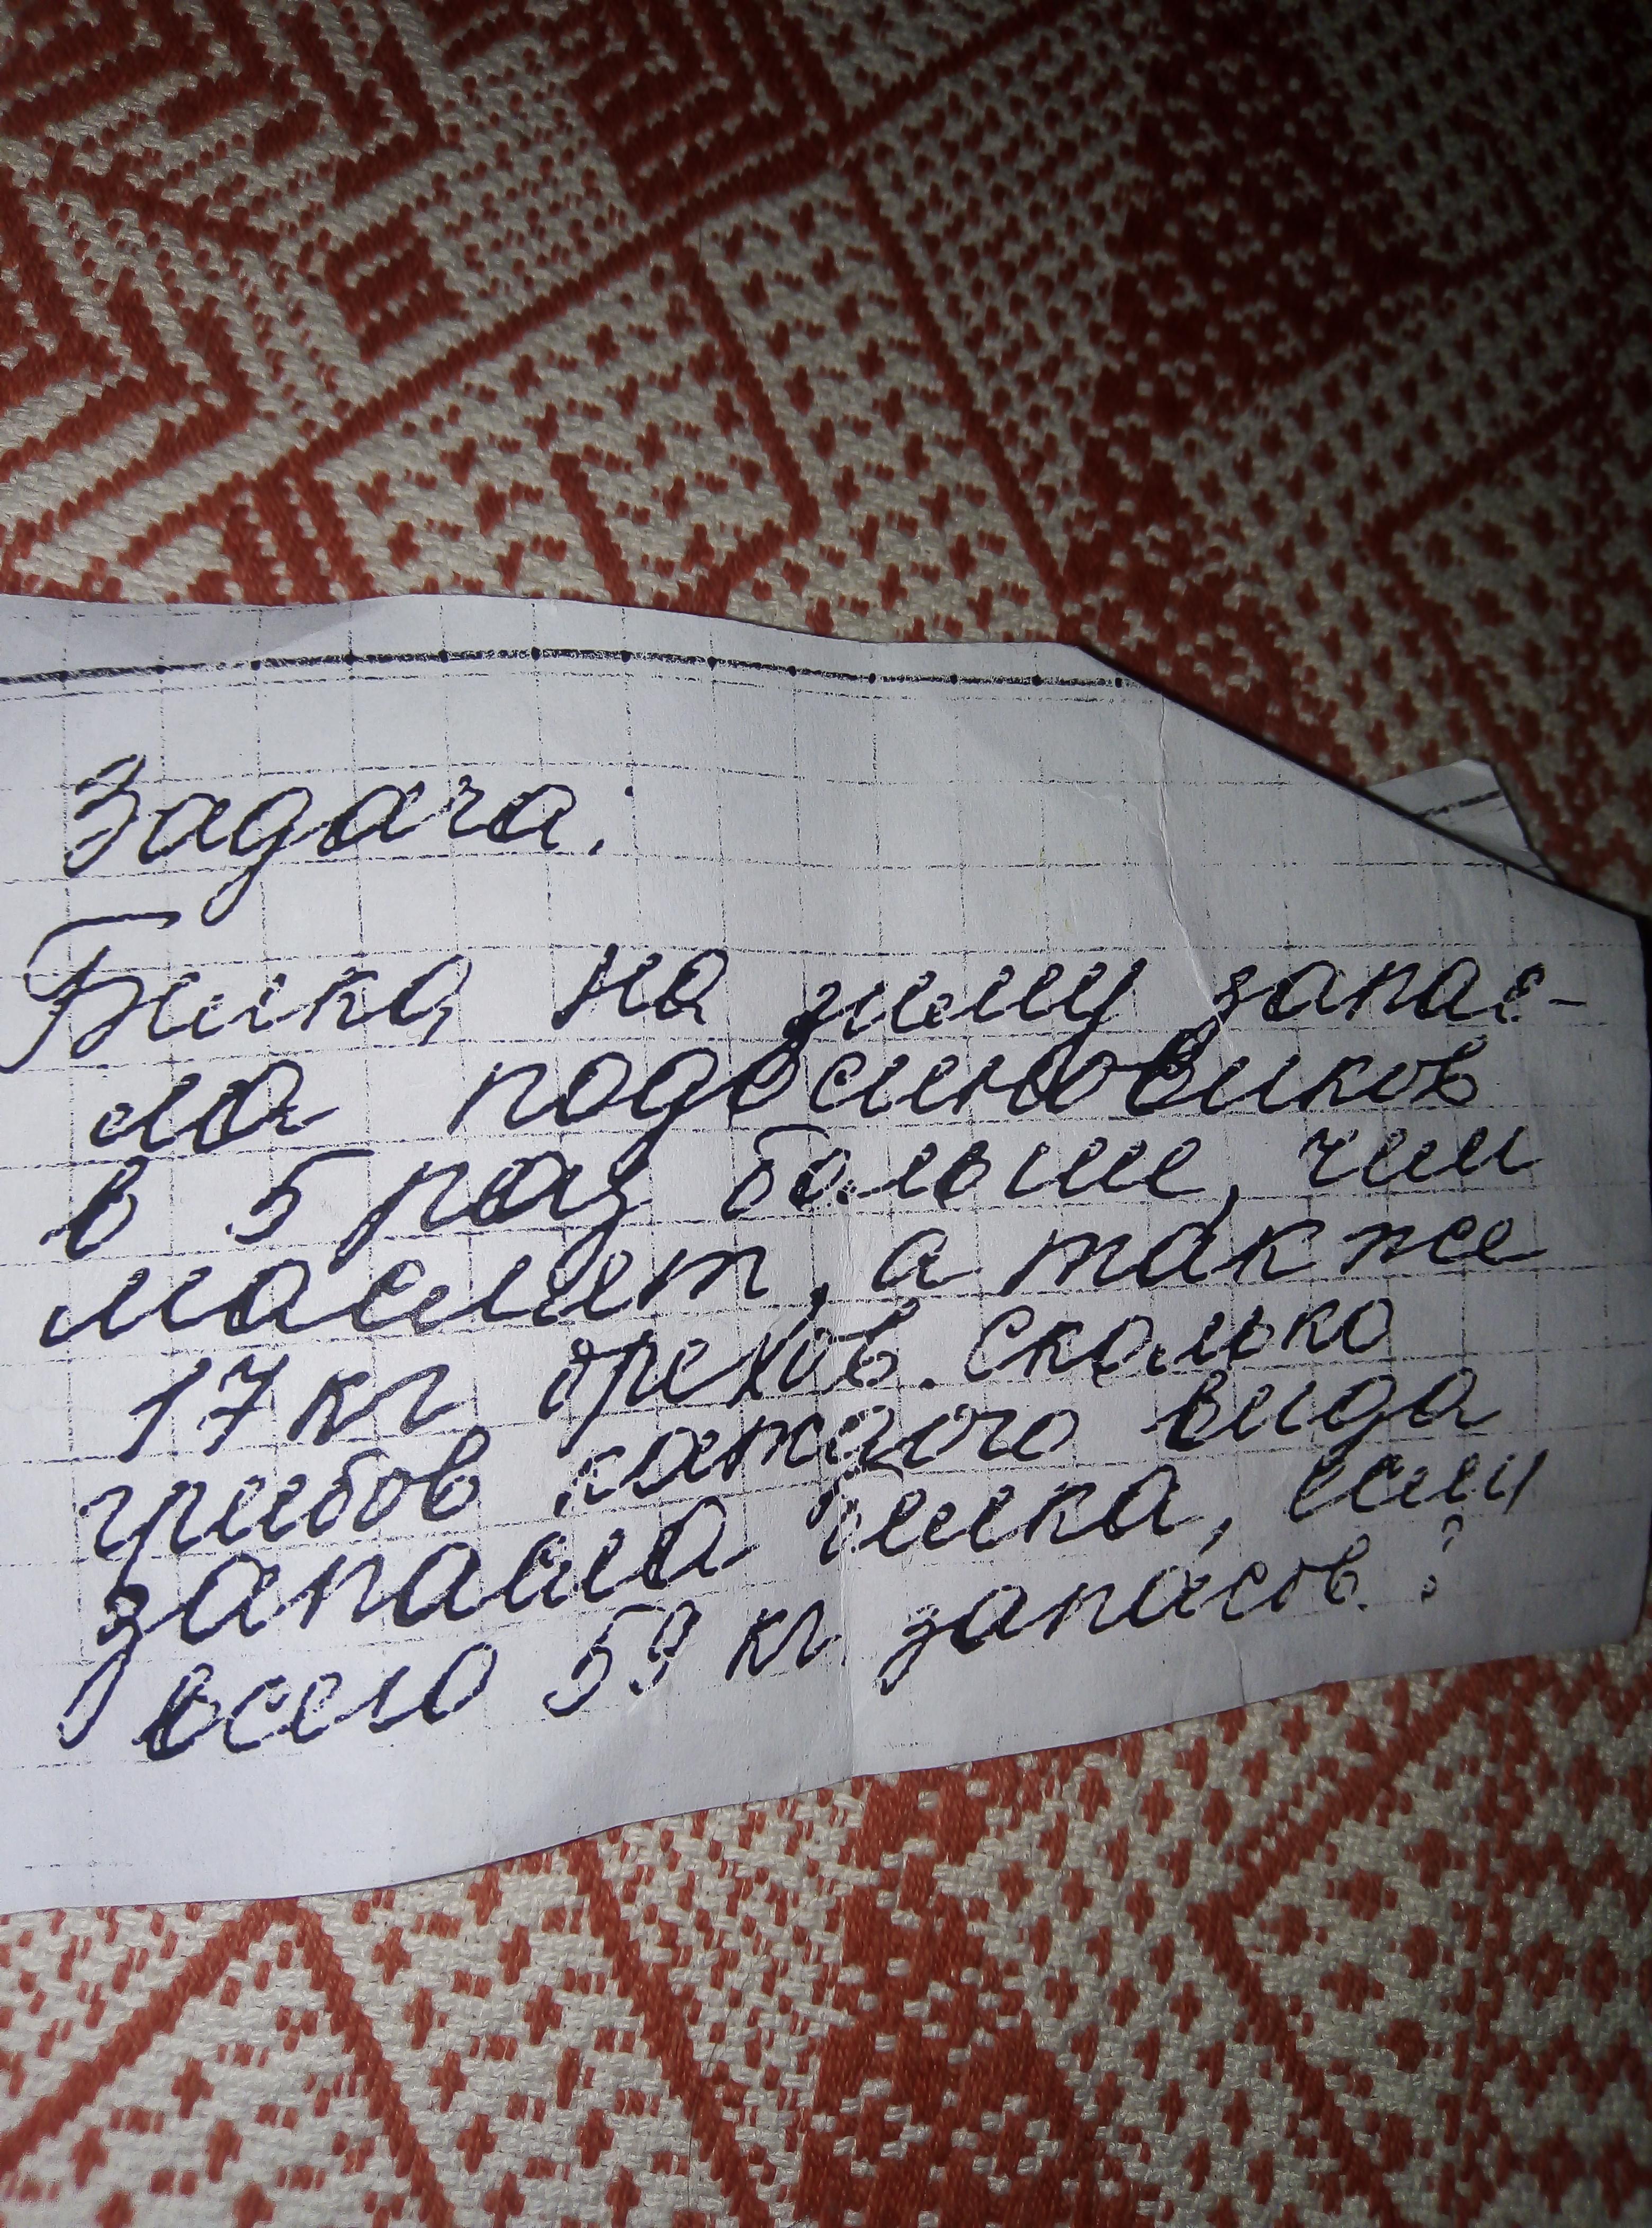 Задача:
Белка на зиму запас-
ла подосиновиков
в 5 раз больше, чем
маслят, а так же
17 кг орехов. Сколько
грибов каждого вида
запасла белка, если
всего 59 кг запасов?